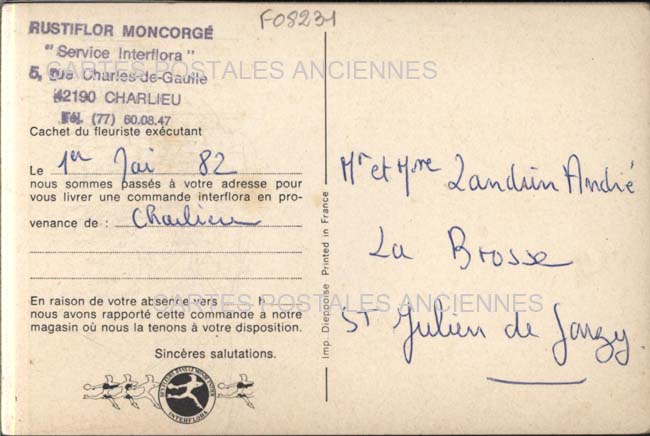 F08231
RUSTIFLOR MONCORGÉ
"Service Interflora"
CARTES POSTALES ANCIENNES
5, rue Charles-de-Gaulle
42190 CHARLIEU
Tél. (77) 60.08.47
Cachet du fleuriste exécutant
Le 1er Mai 82
nous sommes passés à votre adresse pour
vous livrer une commande interflora en pro-
venance de : Charlieu
En raison de votre absence vers h
CARTES POSTALES ANCIENNES
nous avons rapporté cette commande à notre
magasin où nous la tenons à votre disposition.
Sincères salutations.
INTERFLORA
Imp. Dieppoise Printed in France
Mr et Mme Landrin André
La Brosse
ST Julien de Jonzy